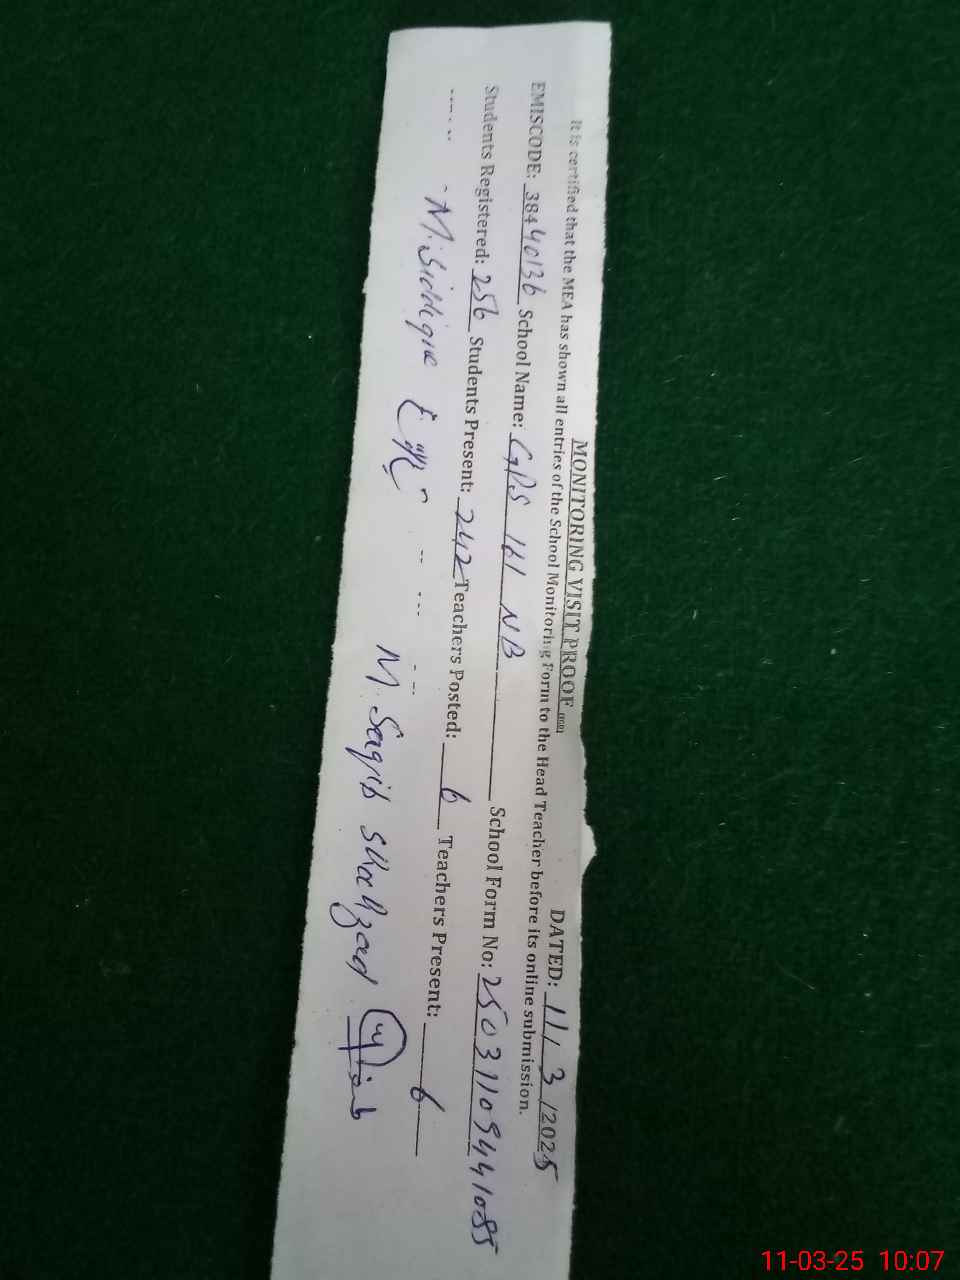 MONITORING VISIT PROOF DATED: 11/ 3 /2025
It is certified that the MEA has shown all entries of the School Monitoring Form to the Head Teacher before its online submission.
EMISCODE: 38440136 School Name: GPS 161 NB School Form No: 25031109441085
Students Registered: 256 Students Present: 242 Teachers Posted: 6 Teachers Present: 6
M. Siddique M. Saqib Shahzad
11-03-25 10:07